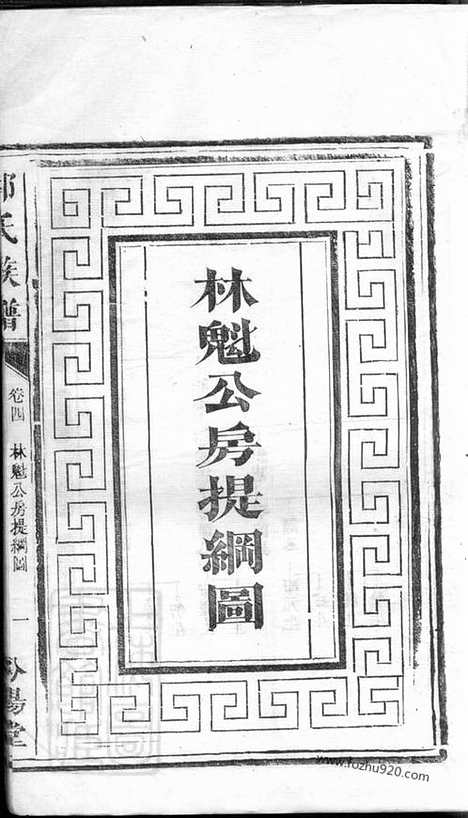 林魁公房提綱圖
氏族譜
卷四 林魁公房提綱圖
一
陽堂
www.fozhu920.com